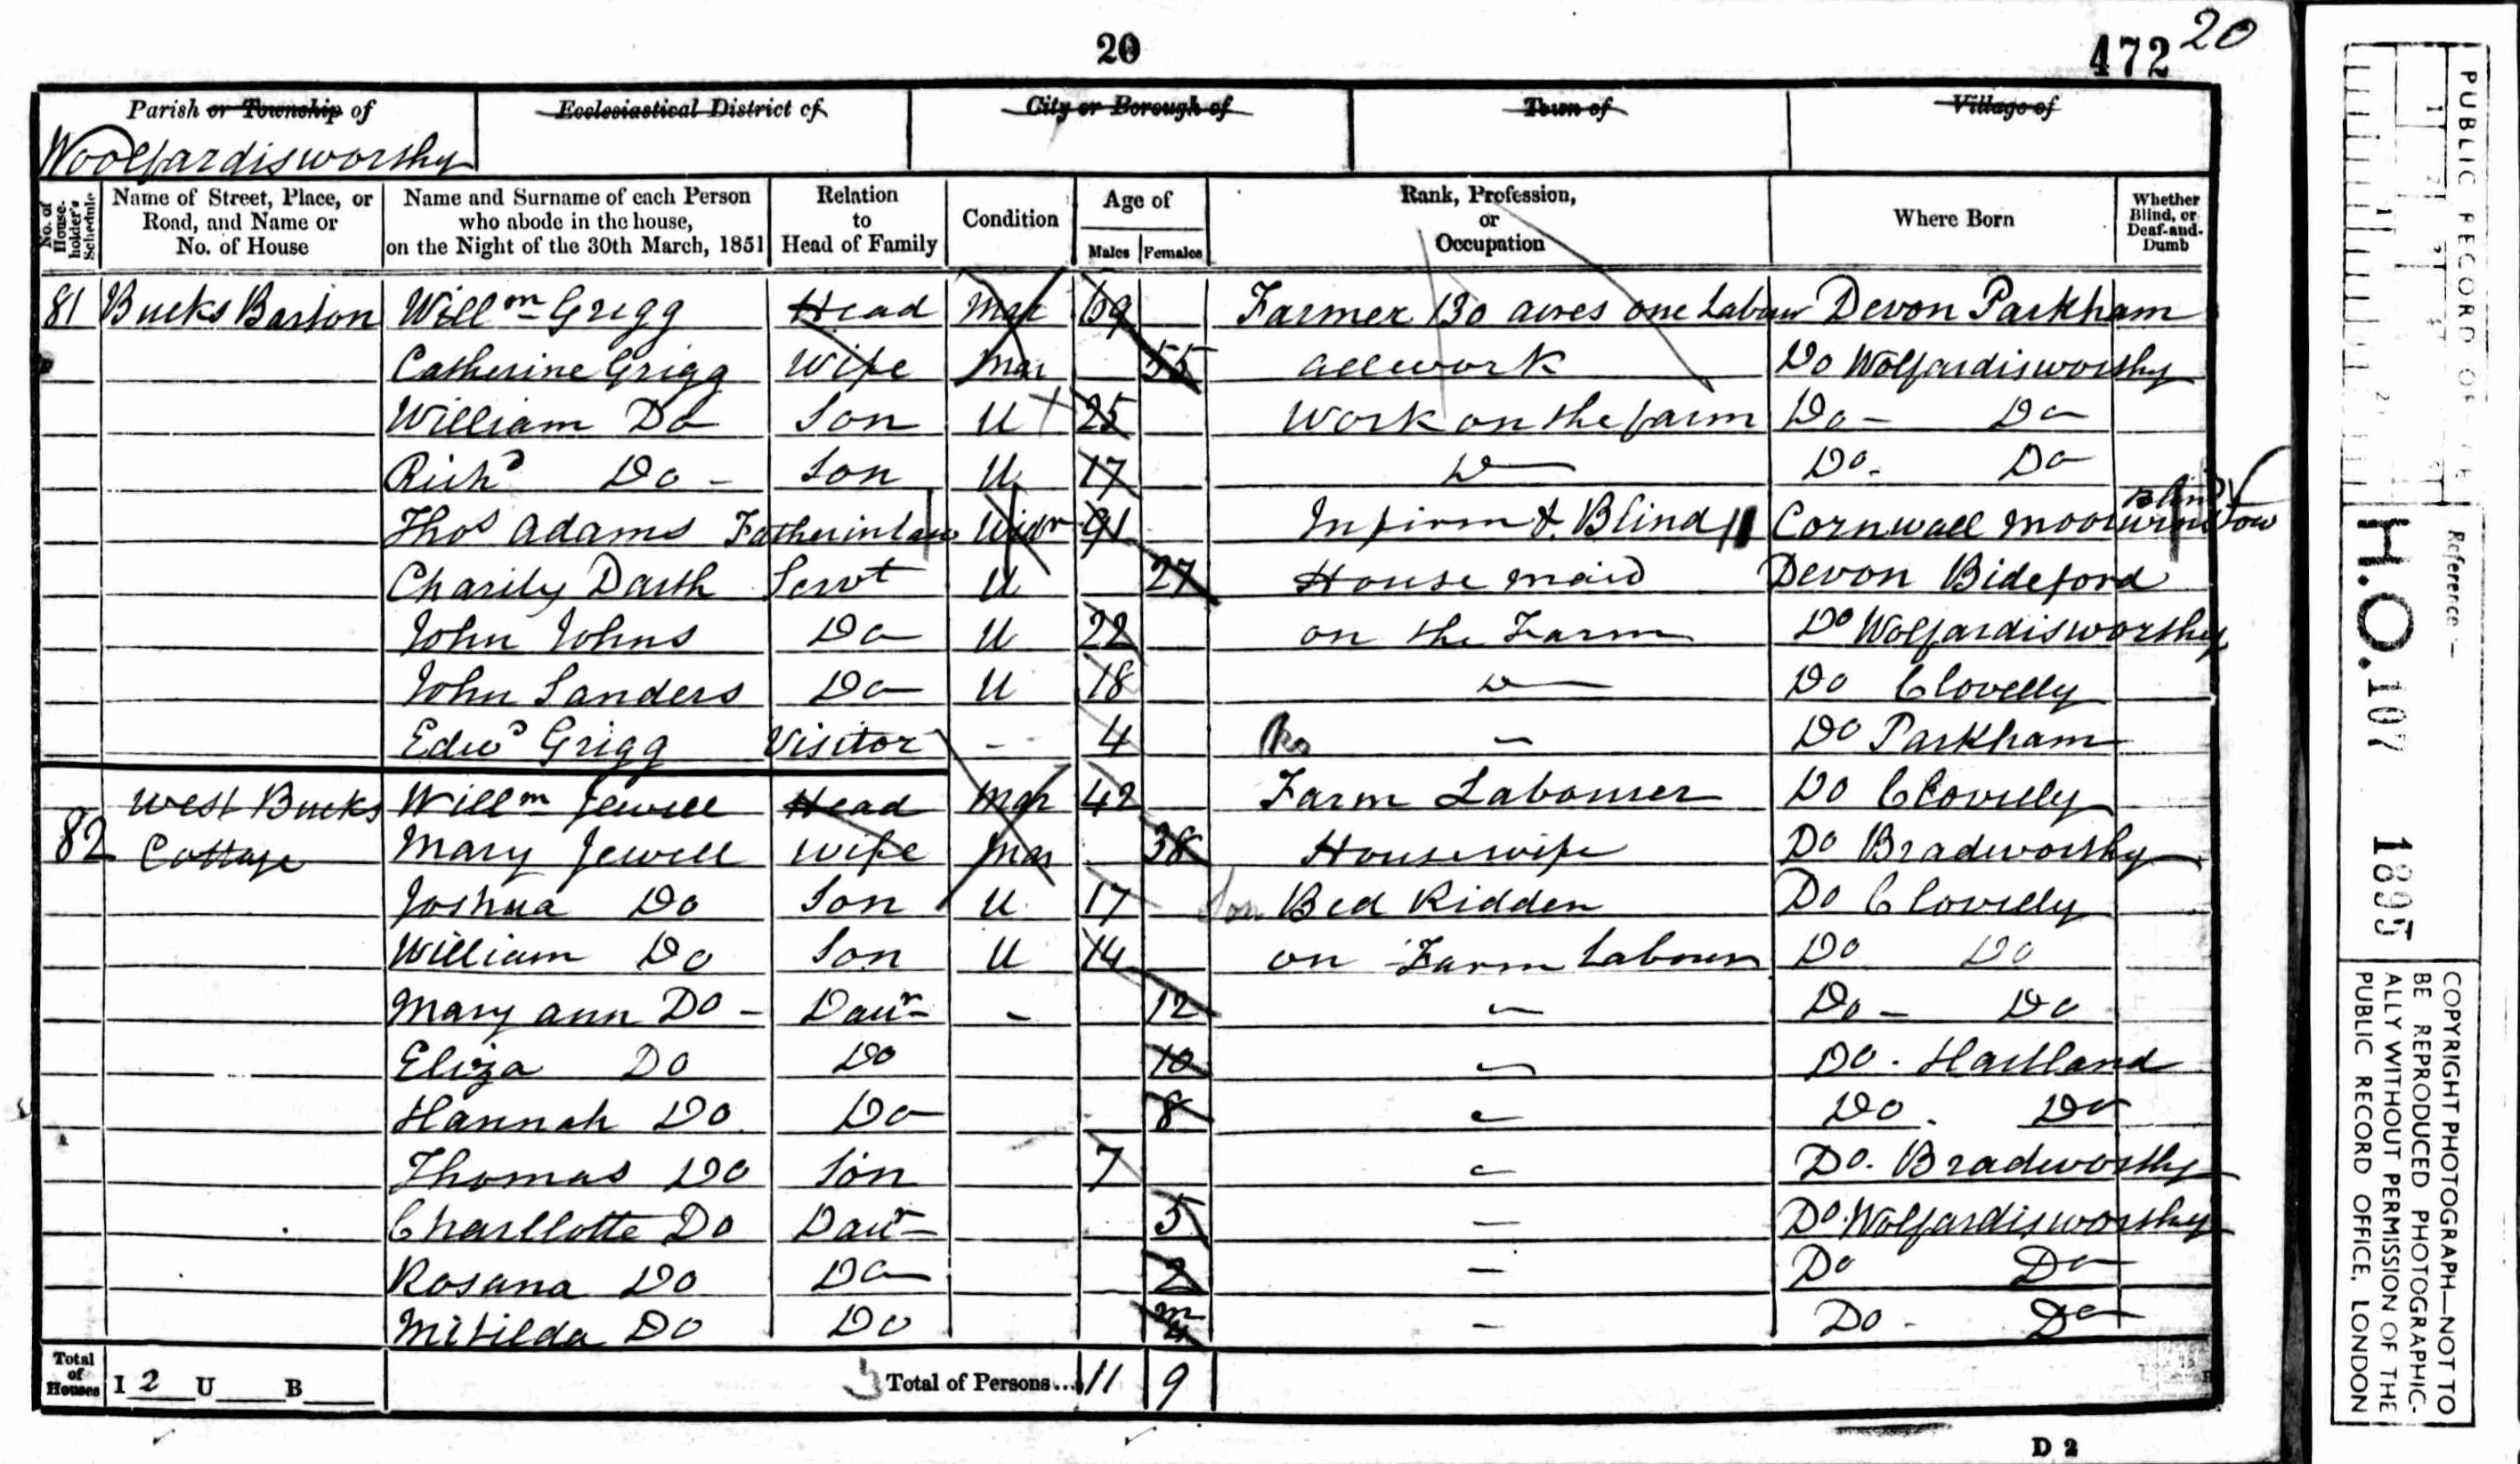 20
472 20
Parish or Township of
Ecclesiastical District of
City or Borough of
Town of
Village of
Woolfardisworthy
No. of House-holder's Schedule
Name of Street, Place, or Road, and Name or No. of House
Name and Surname of each Person who abode in the house, on the Night of the 30th March, 1851
Relation to Head of Family
Condition
Age of
Males Females
Rank, Profession, or Occupation
Where Born
Whether Blind, or Deaf-and-Dumb
81 Bucks Barton Willm Grigg Head Mar 69 Farmer 130 acres one Labour Devon Parkham
Catherine Grigg Wife Mar 55 allwork Do Wolfardisworthy
William Do Son U 25 Work on the farm Do - Do
Richd Do - Son U 17 Do Do. Do
Thos Adams Father in law Widr 91 Infirm & Blind Cornwall Moorwinstow Blind
Charity Darth Servt U 27 House maid Devon Bideford
John Johns Do U 22 on the Farm Do Wolfardisworthy
John Sanders Do U 18 Do Do Clovelly
Edwd Grigg Visitor - 4 - Do Parkham
82 West Bucks Cottage Willm Jewell Head Mar 42 Farm Labourer Do Clovelly
Mary Jewell Wife Mar 38 Housewife Do Bradworthy
Joshua Do Son U 17 Son Bed Ridden Do Clovelly
William Do Son U 14 on Farm Labour Do Do
Mary ann Do - Daur - 12 - Do - Do
Eliza Do Do 10 - Do. Hartland
Hannah Do. Do 8 - Do. Do
Thomas Do Son 7 - Do. Bradworthy
Charllotte Do Daur 5 - Do. Wolfardisworthy
Rosana Do Do 2 - Do Do
Mitilda Do Do - Do - Do
Total of Houses I 2 U B Total of Persons... 11 9
D 2
PUBLIC RECORD OFFICE
Reference :-
H.O. 107 1895
COPYRIGHT PHOTOGRAPH—NOT TO
BE REPRODUCED PHOTOGRAPHIC-
ALLY WITHOUT PERMISSION OF THE
PUBLIC RECORD OFFICE, LONDON